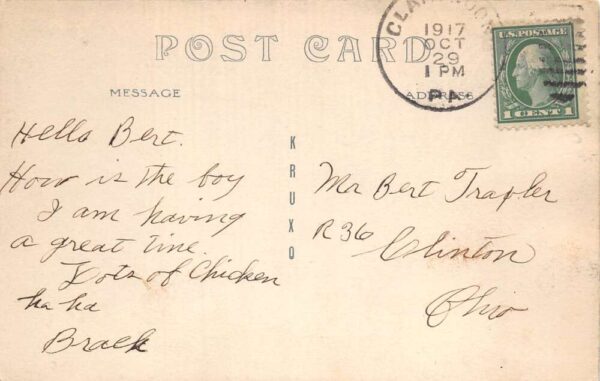 POST CARD
1917
OCT
29
1 PM
PA
U.S. POSTAGE
1 CENT 1
MESSAGE
ADDRESS
Hello Bert.
How is the boy
I am having
a great time.
Lots of Chicken
ha ha
KRUXO
Mr Bert Trapler
R 36
Clinton
Ohio